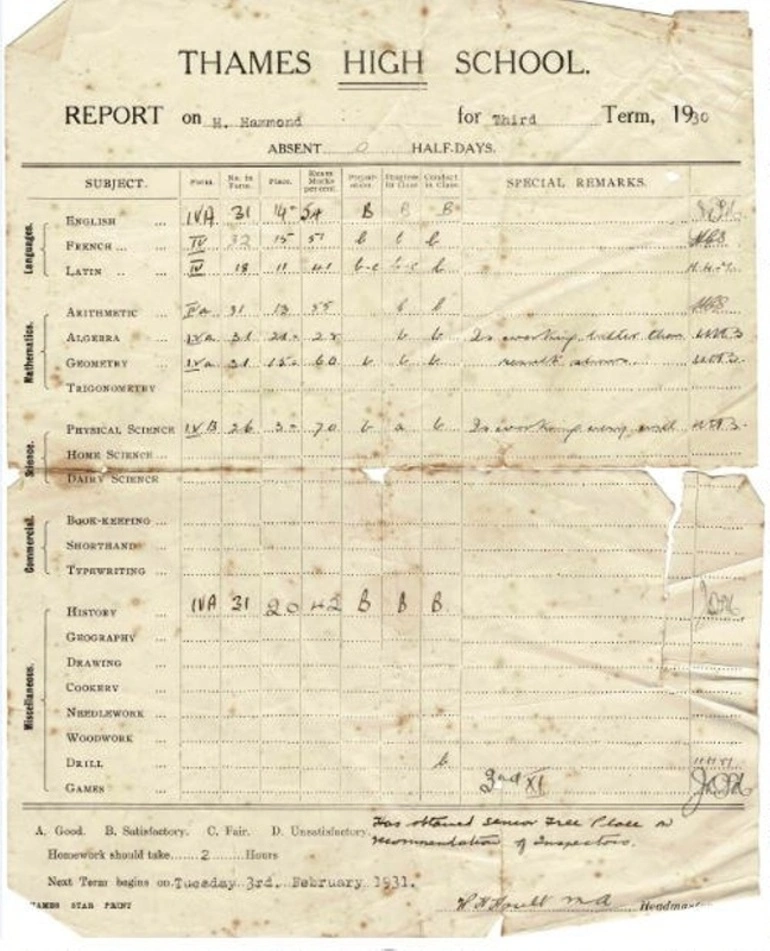 THAMES HIGH SCHOOL.
REPORT on H. Hammond for Third Term, 1930
ABSENT 0 HALF-DAYS.
SUBJECT. Form. No. in Form. Place. Exam Marks per cent. Prepar-ation. Progress in Class Conduct in Class. SPECIAL REMARKS.
Languages.
ENGLISH ... IVA 31 14= 54 B B B
FRENCH ... IV 32 15 51 b b b
LATIN ... IV 18 11 41 b-c b-c b
Mathematics.
ARITHMETIC ... IVa 31 13 55 b b
ALGEBRA ... IVa 31 b b Is working better than
GEOMETRY ... IVa 31 15= 60 b b b result shows.
TRIGONOMETRY
Science.
PHYSICAL SCIENCE IVB 26 3= 70 b a b Is working very well
HOME SCIENCE ...
DAIRY SCIENCE
Commercial.
BOOK-KEEPING ...
SHORTHAND ...
TYPEWRITING ...
Miscellaneous.
HISTORY ... IVA 31 20 42 B B B
GEOGRAPHY ...
DRAWING ...
COOKERY ...
NEEDLEWORK ...
WOODWORK ...
DRILL ... b
GAMES ... 3rd XI
A. Good. B. Satisfactory. C. Fair. D. Unsatisfactory. Has obtained Senior Free Place on
recommendation of Inspectors.
Homework should take 2 Hours
Next Term begins on Tuesday 3rd. February 1931.
THAMES STAR PRINT M.A. Headmaster